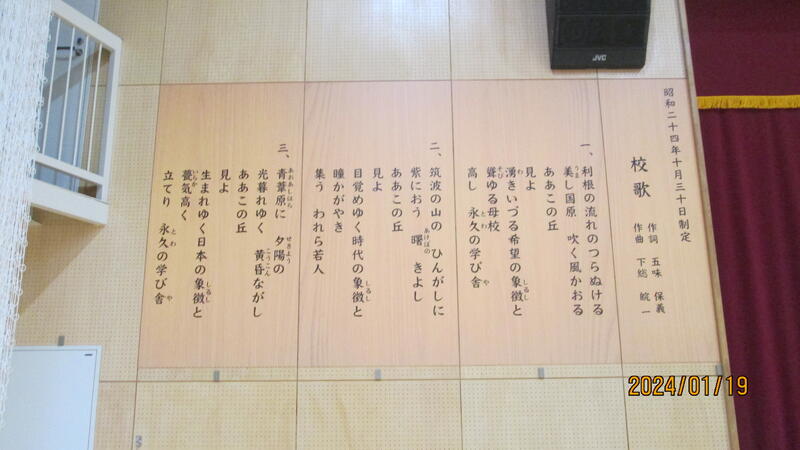 昭和二十四年十月三十日制定
校歌
作詞 五味 保義
作曲 下總 皖一
一、利根の流れのつらぬける
美し国原 吹く風かおる
うま
ああこの丘
見よ
湧きいづる希望の象徴と
わ
しるし
聳ゆる母校
そび
高し 永久の学び舎
とわ
や
二、筑波の山の ひんがしに
紫におう 曙 きよし
あけぼの
ああこの丘
見よ
目覚めゆく時代の象徴と
しるし
瞳かがやき
集う われら若人
三、青葦原に 夕陽の
あおあしはら
せきよう
光暮れゆく 黄昏ながし
こうこん
ああこの丘
見よ
生まれゆく日本の象徴と
しるし
甍気高く
いらか
立てり 永久の学び舎
とわ
や
JVC
2024/01/19